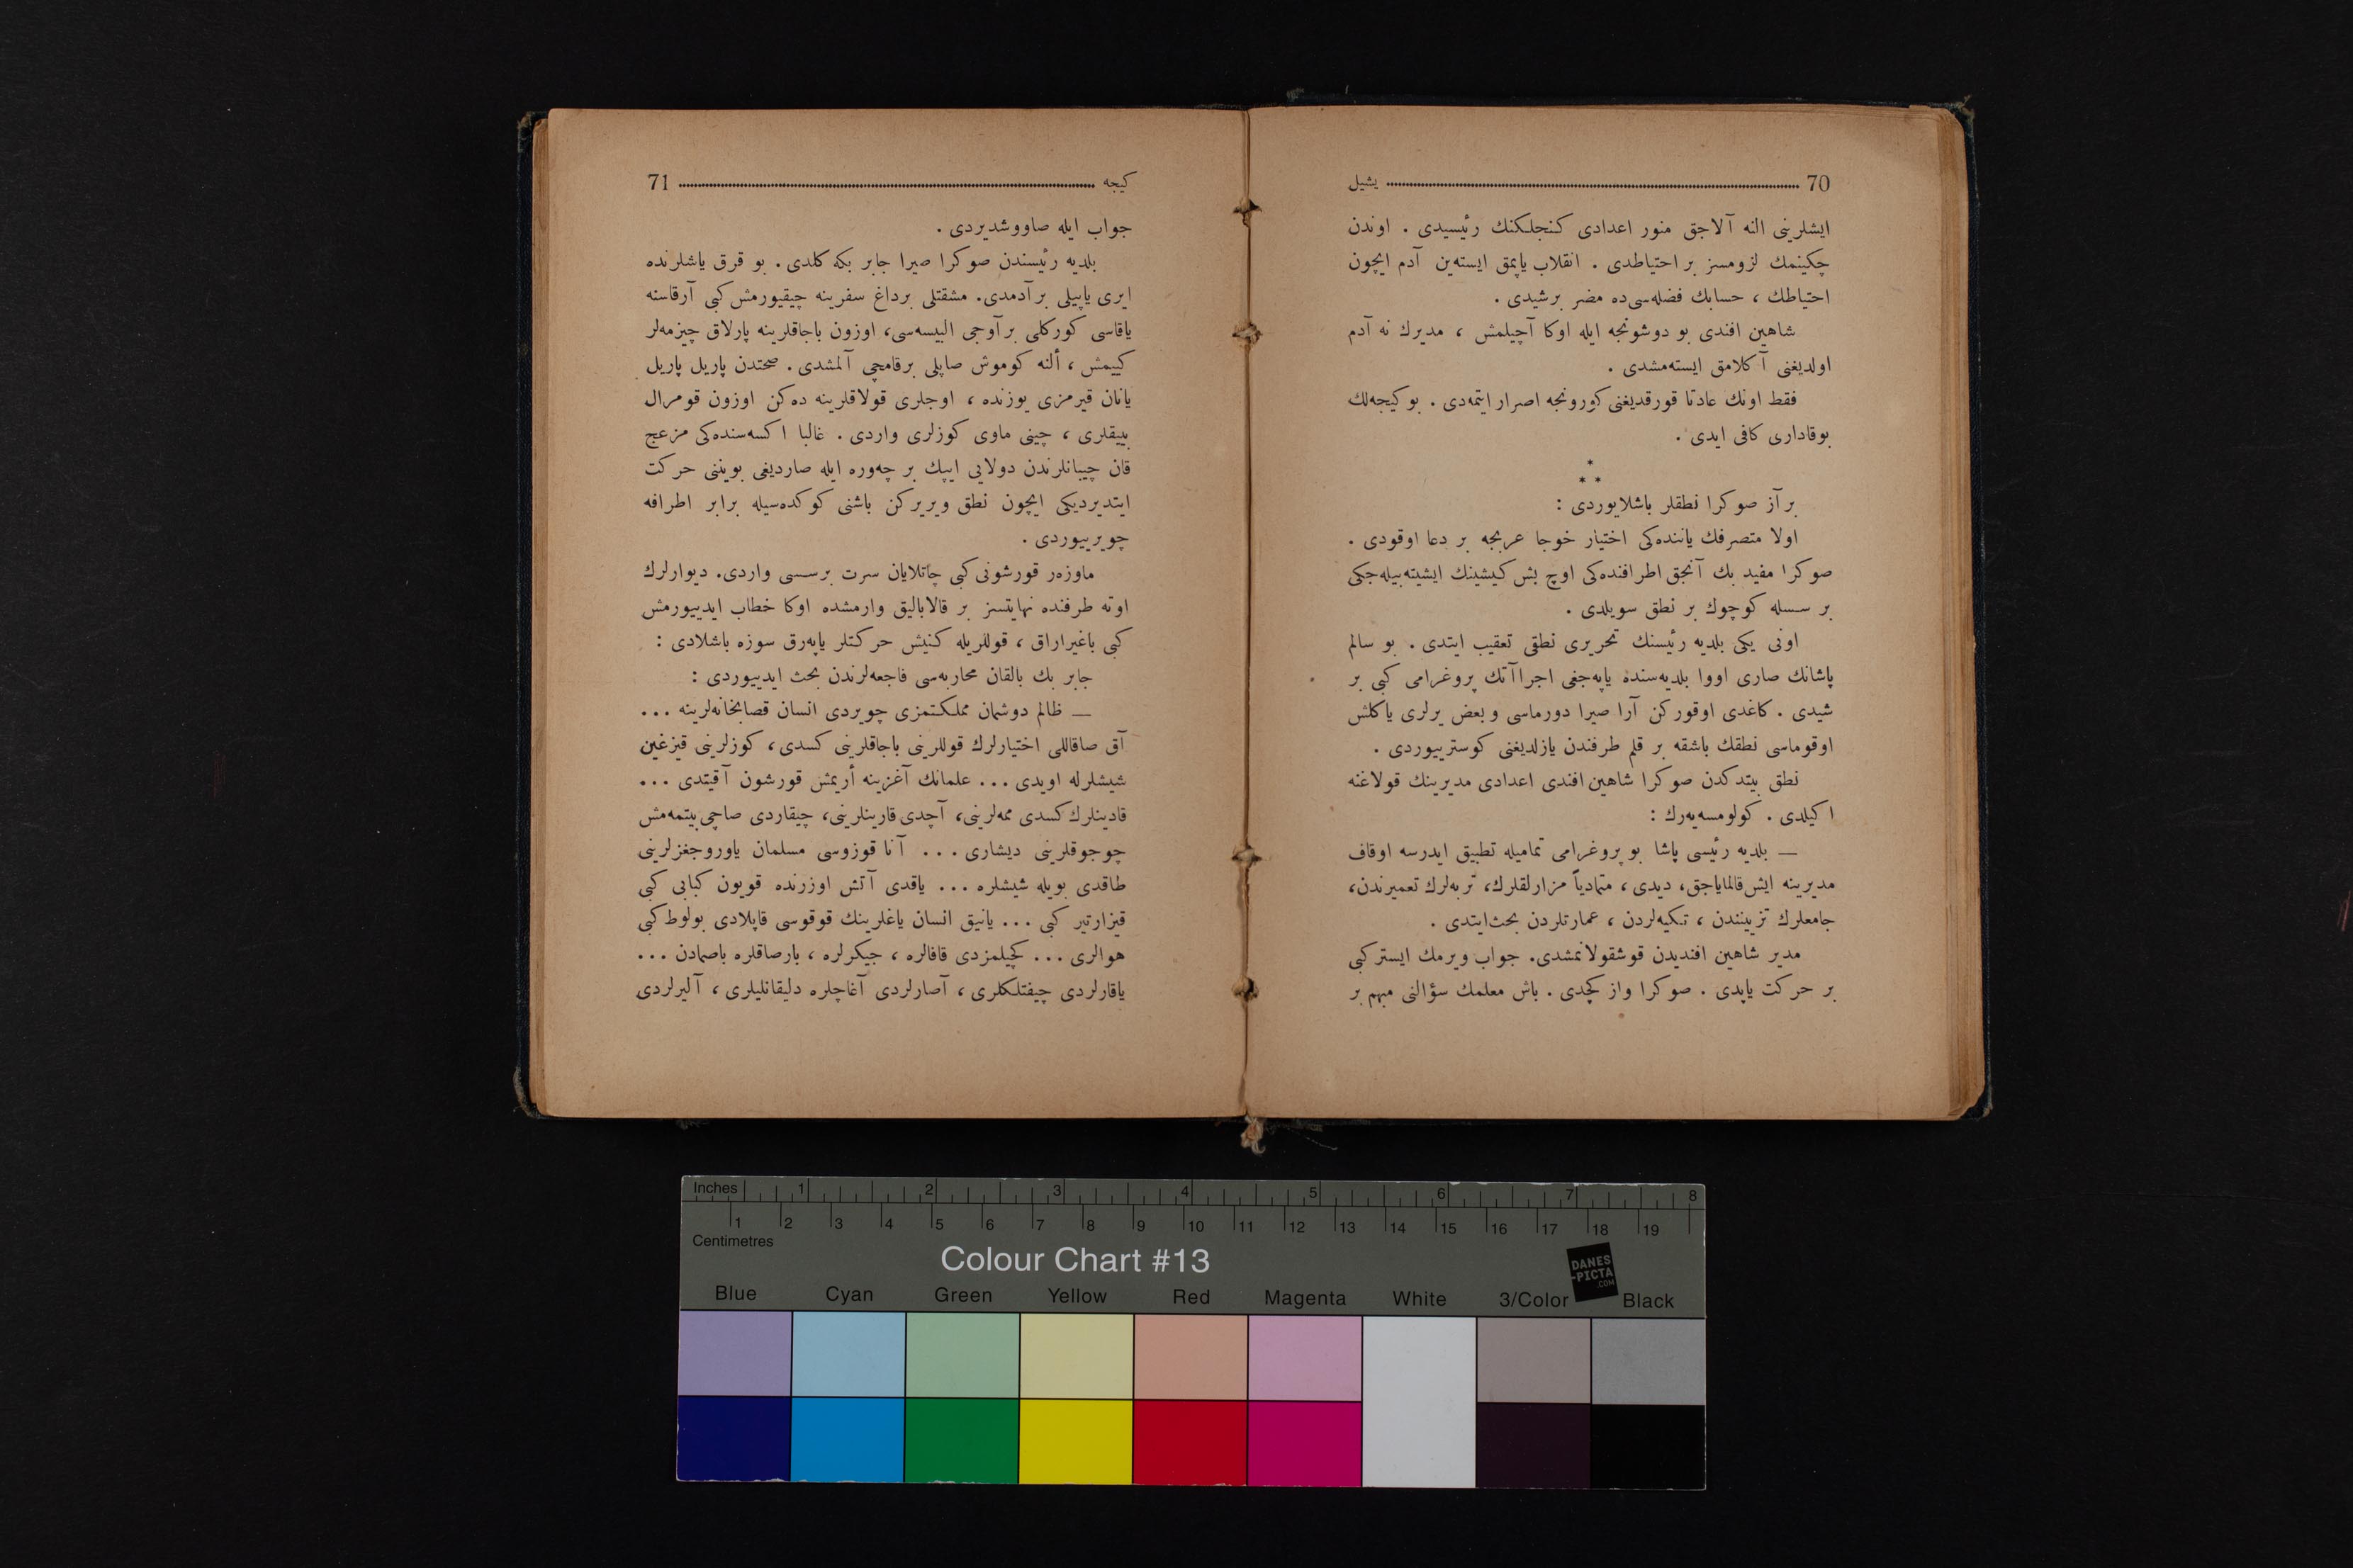 70 یشیل
ایشلرینی النه آلاجق منور اعدادی كنجلكنك رئیسیدی . اوندن
چكینمك لزومسز بر احتیاطدی . انقلاب یاپمق ایسته‌ین آدم ایچون
احتیاطك ، حسابك فضله‌سی‌ده مضر برشیدی .
شاهین افندی بو دوشونجه ایله اوكا آچیلمش ، مدیرك نه آدم
اولدیغنی آكلامق ایسته‌مشدی .
فقط اونك عادتا قورقدیغنی كورونجه اصرار ایتمه‌دی . بو كیجه‌لك
بوقاداری كافی ایدی .
*
* *
بر آز صوكرا نطقلر باشلایوردی :
اولا متصرفك یاننده‌كی اختیار خوجا عربجه بر دعا اوقودی .
صوكرا مفید بك آنجق اطرافنده‌كی اوچ بش كیشینك ایشیته‌بیله‌جكی
بر سسله كوچوك بر نطق سویلدی .
اونی یكی بلدیه رئیسنك تحریری نطقی تعقیب ایتدی . بو سالم
پاشانك صاری اووا بلدیه‌سنده یاپه‌جغی اجراآتك پروغرامی كبی بر
شیدی . كاغدی اوقوركن آرا صیرا دورماسی و بعض یرلری یاكلش
اوقوماسی نطقك باشقه بر قلم طرفندن یازلدیغنی كوستریبوردی .
نطق بیتدكدن صوكرا شاهین افندی اعدادی مدیرینك قولاغنه
اكیلدی . كولومسه‌یه‌رك :
— بلدیه رئیسی پاشا بو پروغرامی تمامیله تطبیق ایدرسه اوقاف
مدیرینه ایش‌قالمایاجق، دیدی ، متمادیاً مزارلقلرك، تربه‌لرك تعمیرندن،
جامعلرك تزییندن ، تكیه‌لردن ، عمارتلردن بحث‌ایتدی .
مدیر شاهین افندیدن قوشقولانمشدی. جواب ویرمك ایستر كبی
بر حركت یاپدی . صوكرا واز كچدی . باش معلمك سؤالنی مبهم بر
كیجه 71
جواب ایله صاووشدیردی .
بلدیه رئیسندن صوكرا صیرا جابر بكه كلدی . بو قرق یاشلرنده
ایری یاپیلی بر آدمدی. مشقتلی برداغ سفرینه چیقیورمش كبی آرقاسنه
یاقاسی كوركلی بر آوجی البیسه‌سی، اوزون باجاقلرینه پارلاق چیزمه‌لر
كییمش ، ألنه كوموش صاپلی برقامچی آلمشدی . صحتدن پاریل پاریل
یانان قیرمزی یوزنده ، اوجلری قولاقلرینه ده‌كن اوزون قومرال
بییقلری ، چینی ماوی كوزلری واردی . غالبا اكسه‌سنده‌كی مزعج
قان چیبانلرندن دولایی ایپك بر چه‌وره ایله صاردیغی بویننی حركت
ایتدیردیكی ایچون نطق ویریركن باشنی كوكده‌سیله برابر اطرافه
چویرییوردی .
ماوزه‌ر قورشونی كبی چاتلایان سرت برسسی واردی. دیوارلرك
اوته طرفنده نهایتسز بر قالابالیق وارمشده اوكا خطاب ایدییورمش
كبی باغیراراق ، قوللریله كنیش حركتلر یاپه‌رق سوزه باشلادی :
جابر بك بالقان محاربه‌سی فاجعه‌لرندن بحث ایدییوردی :
— ظالم دوشمان مملكتمزی چویردی انسان قصابخانه‌لرینه ...
آق صاقاللی اختیارلرك قوللرینی باجاقلرینی كسدی، كوزلرینی قیزغین
شیشلرله اویدی ... علمانك آغزینه أریمش قورشون آقیتدی ...
قادینلرك كسدی ممه‌لرینی، آچدی قارینلرینی، چیقاردی صاچی بیتمه‌مش
چوجوقلرینی دیشاری ... آنا قوزوسی مسلمان یاوروجغزلرینی
طاقدی بویله شیشلره ... یاقدی آتش اوزرنده قویون كبابی كبی
قیزارتیر كبی ... یانیق انسان یاغلرینك قوقوسی قاپلادی بولوط كبی
هوالری ... كچیلمزدی قافالره ، جیكرلره ، بارصاقلره باصمادن ...
یاقارلردی چیفتلكلری ، آصارلردی آغاچلره دلیقانلیلری ، آلیرلردی
Inches 1 2 3 4 5 6 7 8
1 2 3 4 5 6 7 8 9 10 11 12 13 14 15 16 17 18 19
Centimetres
Colour Chart #13
DANES
-PICTA
.COM
Blue Cyan Green Yellow Red Magenta White 3/Color Black